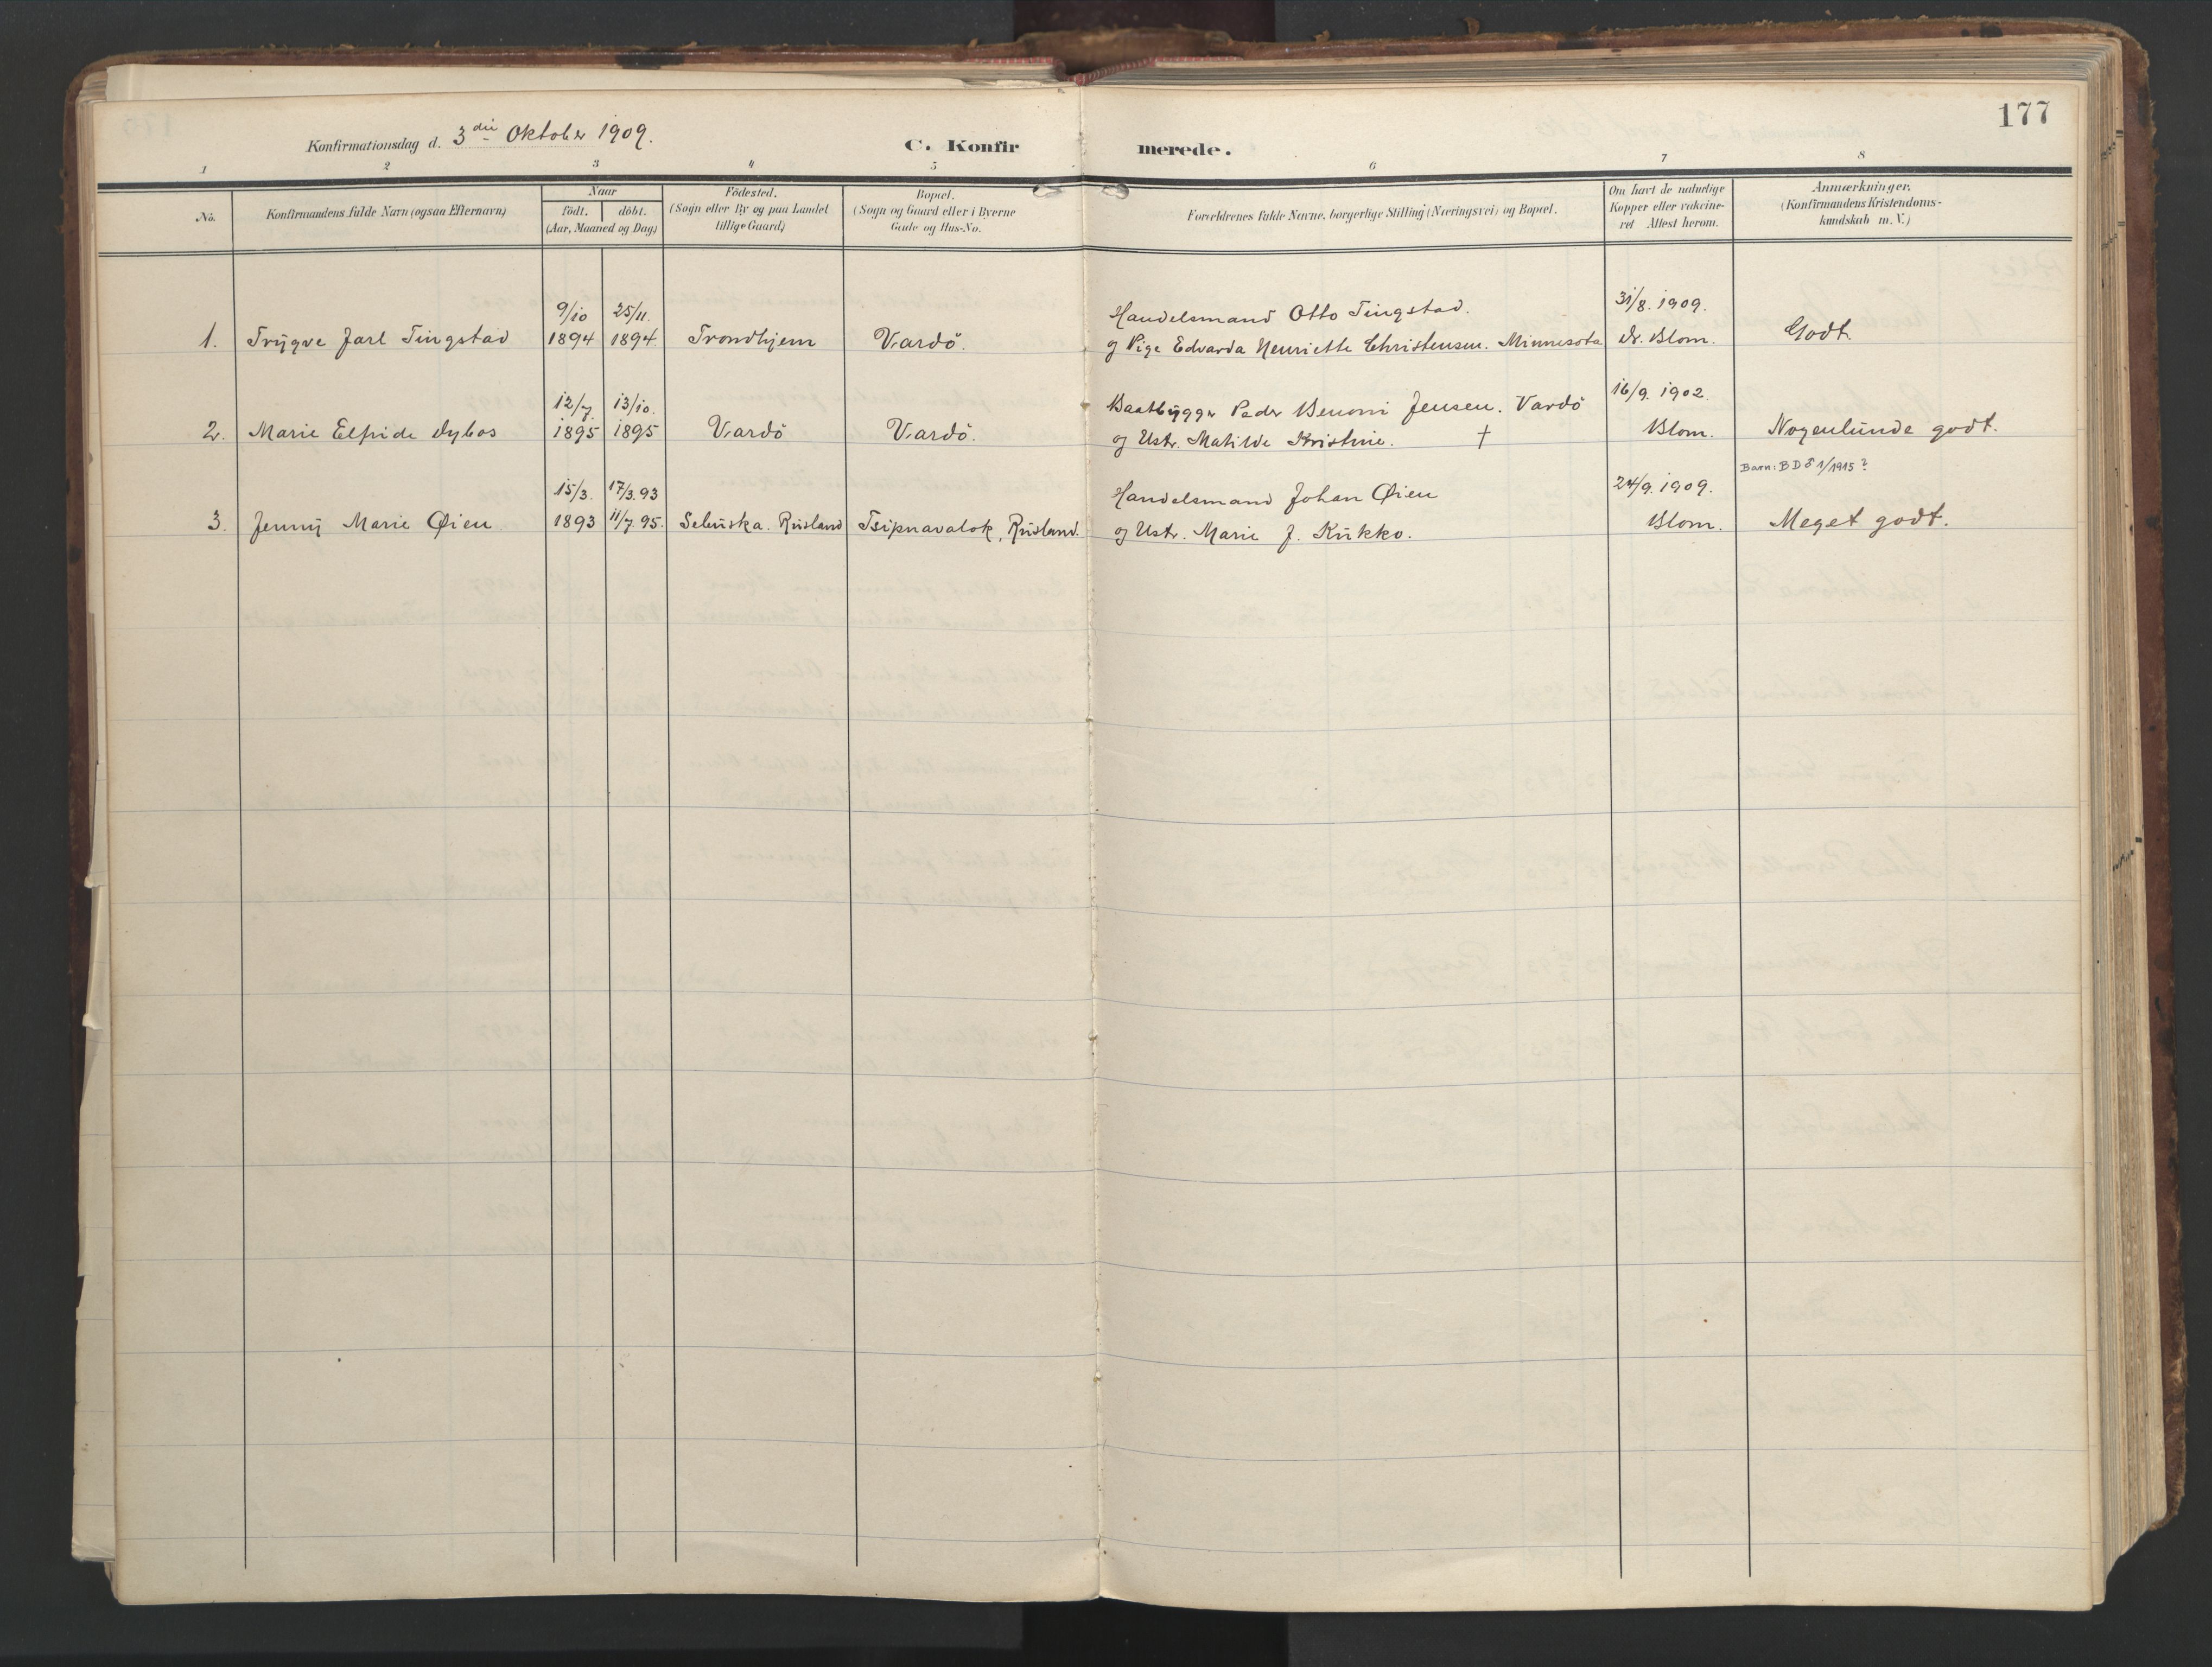 177
Konfirmationsdag d. 3die Oktober 1909.
C. Konfirmerede.
1 2 3 4 5 6 7 8
No.
Konfirmandens fulde Navn (ogsaa Efternavn)
Naar
födt. döbt.
(Aar, Maaned og Dag)
Födested.
(Sogn eller By og paa Landet
tillige Gaard)
Bopæl.
(Sogn og Gaard eller i Byerne
Gade og Hus-No.
Forældrenes fulde Navne, borgerlige Stilling (Næringsvei) og Bopæl.
Om havt de naturlige
Kopper eller vakcine-
ret Attest herom.
Anmærkninger.
(Konfirmandens Kristendoms-
kundskab m. V.)
9/10 25/11. Handelsmand Otto Tingstad. 31/8. 1909.
1. Trygve Jarl Tingstad 1894 1894 Trondhjem Vardö. og Pige Edvarda Henriette Christensen. Minnesota Dr. Blom. Godt.
12/7. 13/10. Baatbygger Peder Benoni Jensen. Vardö 16/9. 1902.
2. Marie Elfride Dybos 1895 1895 Vardö Vardö. og Ustr. Matilde Kristine. † Blom. Nogenlunde godt.
Barn: BD 8 1/1915?
15/3. 17/3. 93 Handelsmand Johan Øien 24/9. 1909.
3. Jenny Marie Øien 1893 11/7. 95. Sebuska. Rusland Tsipnavalok, Rusland. og Ustr. Marie J. Kukko. Blom. Meget godt.